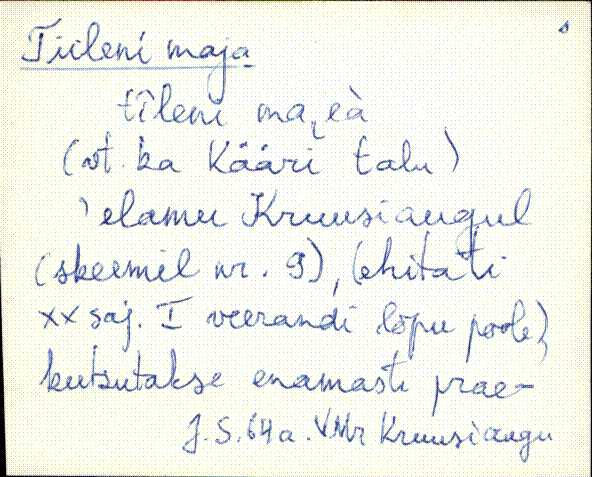 Tiileni maja
tîleni mai̯eà
(vt. ka Kääri talu)
' elamu Kruusiaugul
(skeemil nr. 9), (ehitati
XX saj. I veerandi lõpu poole)
kutsutakse enamasti prae-
J.S. 64 a. VMr Kruusiaugu